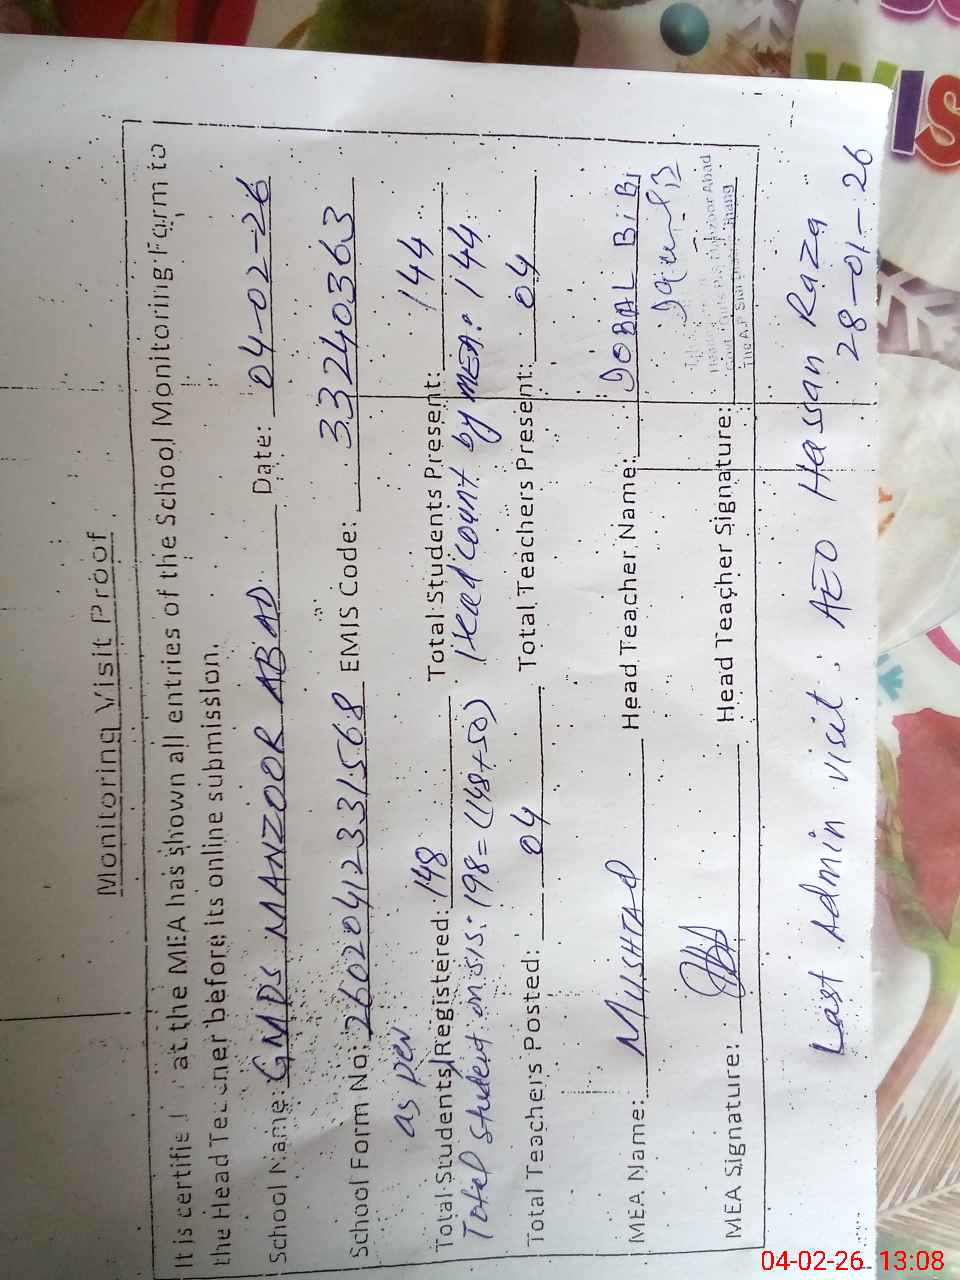 Monitoring Visit Proof
It is certifie at the MEA has shown all entries of the School Monitoring Form to
the Head Teacher before its online submission.
School Name: GMPS MANZOOR ABAD Date: 04-02-26
School Form No: 26020412331568 EMIS Code: 33240363
as per
Total Students Registered: 148 Total Students Present: 144
Total student on SIS: 198=(148+50) Head count by MEA: 144
Total Teachers Posted: 04 Total Teachers Present: 04
MEA Name: MUSHTAQ Head Teacher Name: IQBAL BiBi
MEA Signature: Head Teacher Signature:
Manzoor Abad
Last Admin visit: AEO Hassan Raza
28-01-26
WIS
04-02-26 13:08